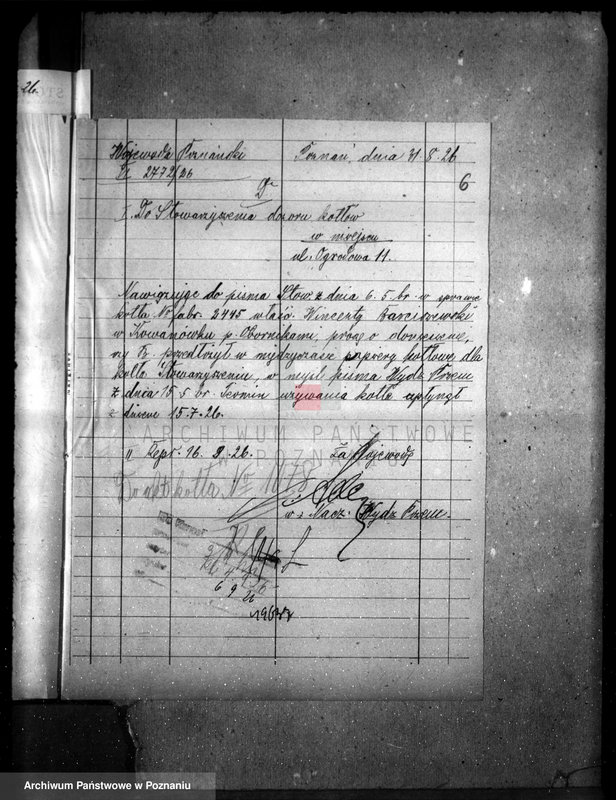 26.
Wojewoda Poznański
Poznań, dnia 31.8.26
2772/26
6
I. Do Stowarzyszenia dozoru kotłów
w miejscu
ul. Ogrodowa 11.
Nawiązując do pisma Stow. z dnia 6.5 br. w sprawie
kotła Nr fabr. 2945 właśc. Wincenty Barciszewski
w Kowanówku p. Obornikami, proszę o doniesienie,
czy B. przedłożył w międzyczasie papiery kotłowe dla
kotła Stowarzyszeniu, w myśl pisma Wydz. Przem
z dnia 15.5 br. Termin używania kotła upłynął
z dniem 15.7.26.
ARCHIWUM PAŃSTWOWE
W POZNANIU
II 26.
Za Wojewodę
Do akt kotła Nr 1078
w z. Nacz. Wydz. Przem.
6 9 26
Archiwum Państwowe w Poznaniu